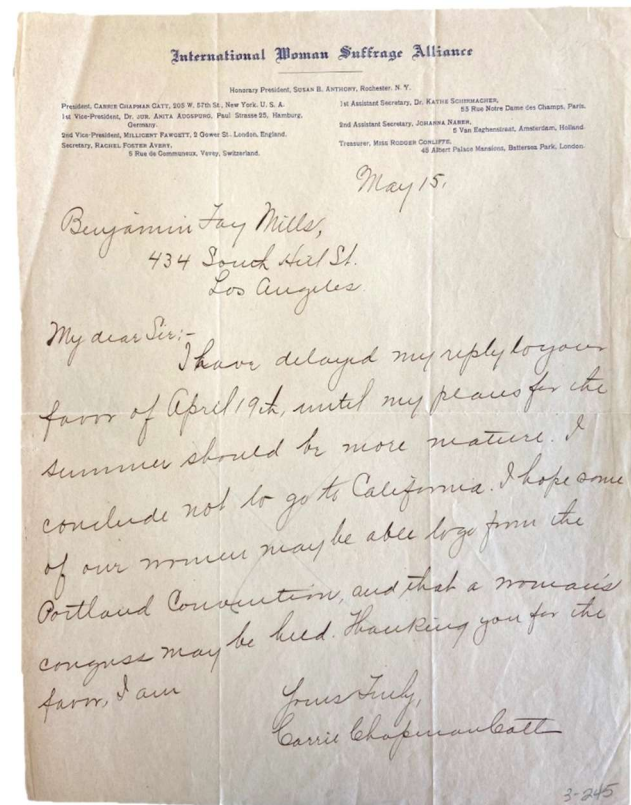 International Woman Suffrage Alliance
Honorary President, SUSAN B. ANTHONY, Rochester, N. Y.
President, CARRIE CHAPMAN CATT, 205 W. 57th St., New York, U. S. A.
1st Vice-President, Dr. JUR. ANITA AUGSPURG, Paul Strasse 25, Hamburg, Germany.
2nd Vice-President, MILLICENT FAWCETT, 2 Gower St., London, England.
Secretary, RACHEL FOSTER AVERY,
5 Rue de Communeux, Vevey, Switzerland.
1st Assistant Secretary, Dr. KATHE SCHIRMACHER,
53 Rue Notre Dame des Champs, Paris.
2nd Assistant Secretary, JOHANNA NABER,
5 Van Eaghenstraat, Amsterdam, Holland.
Treasurer, Miss RODGER CUNLIFFE,
48 Albert Palace Mansions, Battersea Park, London.
May 15,
Benjamin Fay Mills,
434 South Hill St.
Los Angeles.
My dear Sir:-
I have delayed my reply to your
favor of April 19th, until my plans for the
summer should be more mature. I
conclude not to go to California. I hope some
of our women may be able to go from the
Portland Convention, and that a woman's
congress may be held. Thanking you for the
favor, I am
Yours Truly,
Carrie Chapman Catt
3-245